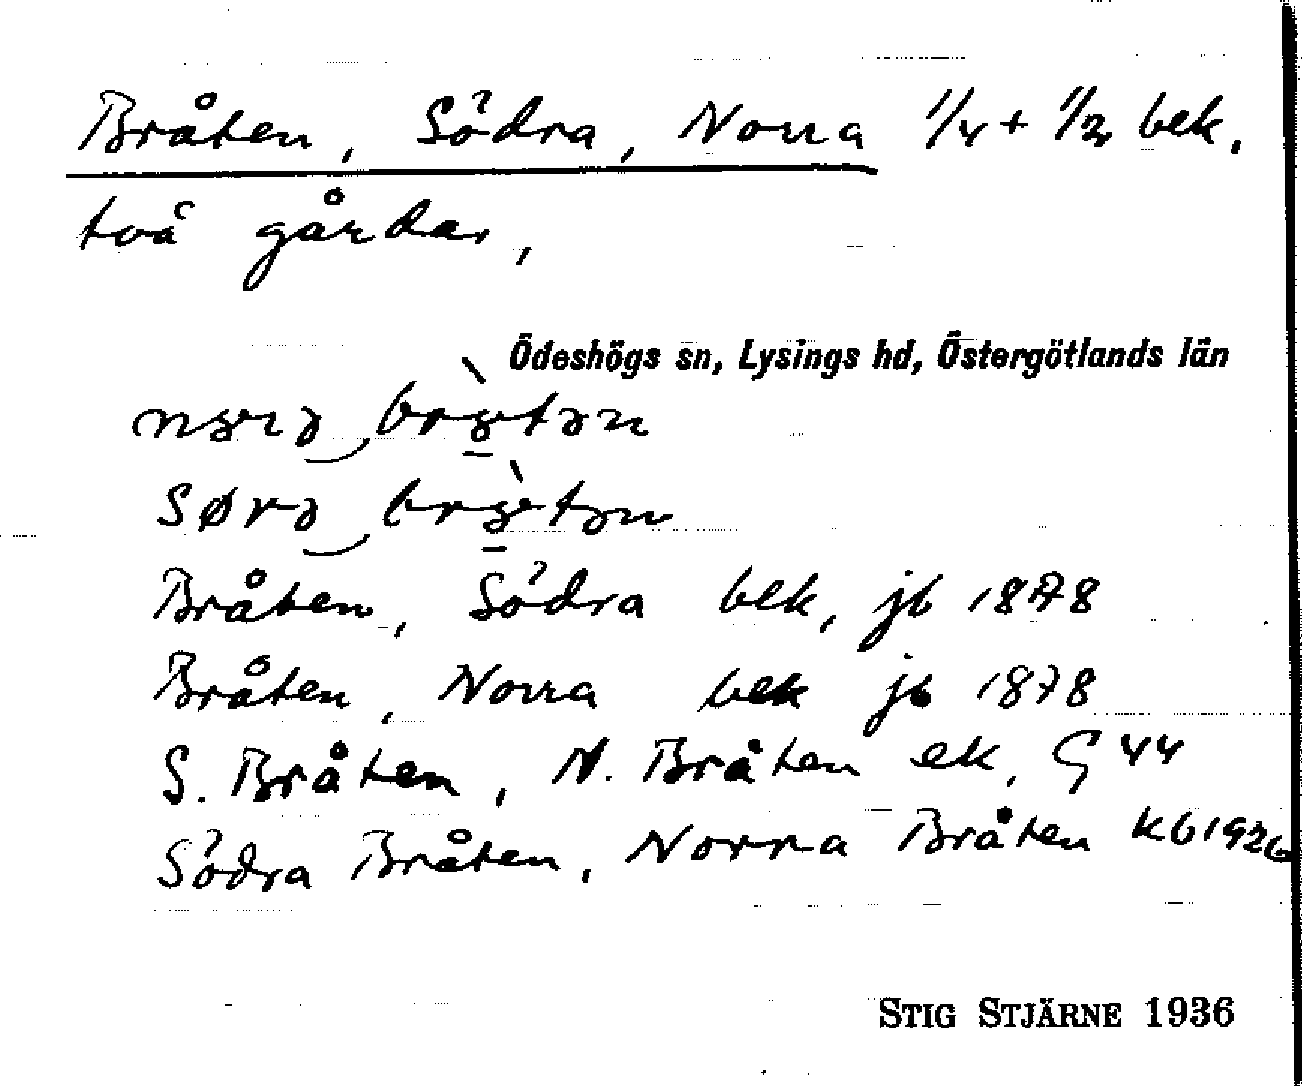 Bråten, Södra, Norra 1/4 + 1/2 bek.
två gårdar,
Ödeshögs sn, Lysings hd, Östergötlands län
Bråten, Södra bek, jb 1878
Bråten, Norra bek jb 1878
S. Bråten, N. Bråten ek, G 44
Södra Bråten, Norra Bråten kb 1926
STIG STJÄRNE 1936